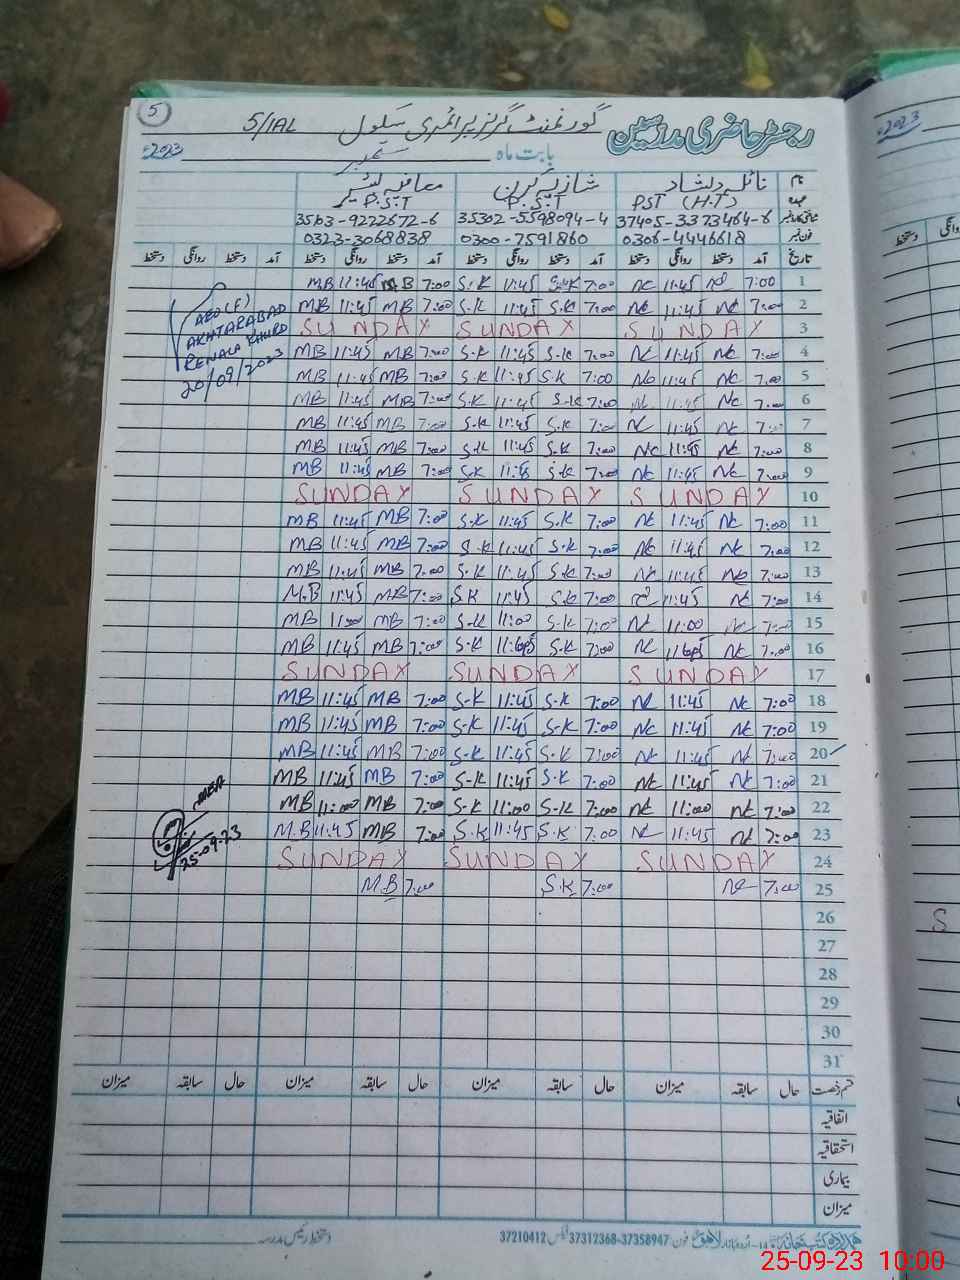 5
گورنمنٹ گرلز پرائمری سکول 5/1AL
رجسٹر حاضری مدرسین
بابت ماہ ستمبر 2023ء
نام نائلہ دلشاد شازیہ کرن
عہدہ PST (H.T) P.S.T P.S.T
شناختی کارڈ نمبر 37405-3373464-6 35302-5598094-4 3503-9222672-6
فون نمبر 0306-4446618 0300-7591860 0323-3068838
تاریخ آمد دستخط روانگی دستخط آمد دستخط روانگی دستخط آمد دستخط روانگی دستخط آمد دستخط روانگی دستخط
1 7:00 11:45 7:00 S.K 11:45 S.K 7:00 MB 11:45 MB
2 7:00 NC 11:45 NC 7:00 S.K 11:45 S.K 7:00 MB 11:45 MB
3 SUNDAY SUNDAY SUNDAY
4 7:00 NC 11:45 NC 7:00 S.K 11:45 S.K 7:00 MB 11:45 MB
5 7:00 NC 11:45 NC 7:00 S.K 11:45 S.K 7:00 MB 11:45 MB
6 7:00 NC 11:45 NC 7:00 S.K 11:45 S.K 7:00 MB 11:45 MB
7 7:00 NC 11:45 NC 7:00 S.K 11:45 S.K 7:00 MB 11:45 MB
8 7:00 NC 11:45 NC 7:00 S.K 11:45 S.K 7:00 MB 11:45 MB
9 7:00 NC 11:45 NC 7:00 S.K 11:45 S.K 7:00 MB 11:45 MB
10 SUNDAY SUNDAY SUNDAY
11 7:00 NC 11:45 NC 7:00 S.K 11:45 S.K 7:00 MB 11:45 MB
12 7:00 NC 11:45 NC 7:00 S.K 11:45 S.K 7:00 MB 11:45 MB
13 7:00 NC 11:45 NC 7:00 S.K 11:45 S.K 7:00 MB 11:45 MB
14 7:00 NC 11:45 7:00 S.K 11:45 SK 7:00 MB 11:45 M.B
15 7:00 NC 11:00 NC 7:00 S.K 11:00 S.K 7:00 MB 11:00 MB
16 7:00 NC NC 7:00 S.K S.K 7:00 MB 11:45 MB
17 SUNDAY SUNDAY SUNDAY
18 7:00 NC 11:45 NC 7:00 S.K 11:45 S.K 7:00 MB 11:45 MB
19 7:00 NC 11:45 NC 7:00 S.K 11:45 S.K 7:00 MB 11:45 MB
20 7:00 NC 11:45 NC 7:00 S.K 11:45 S.K 7:00 MB 11:45 MB
21 7:00 NC 11:45 NC 7:00 S.K 11:45 S.K 7:00 MB 11:45 MB
22 7:00 NC 11:00 NC 7:00 S.K 11:00 S.K 7:00 MB 11:00 MB
23 7:00 NC 11:45 NC 7:00 S.K 11:45 S.K 7:00 MB 11:45 M.B
24 SUNDAY SUNDAY SUNDAY
25 7:00 NC 7:00 S.K 7:00 M.B
26
27
28
29
30
31
AEO (F)
AKHTARABAD
RENALA KHURD
20/09/2023
MEA
25-09-23
قسم رخصت حال سابقہ میزان حال سابقہ میزان حال سابقہ میزان حال سابقہ میزان
اتفاقیہ
استحقاقیہ
بیماری
میزان
دستخط رئیس مدرسہ
14-اردو بازار لاہور فون: 37358947-37312368 فیکس 37210412
2023ء
S
25-09-23 10:00